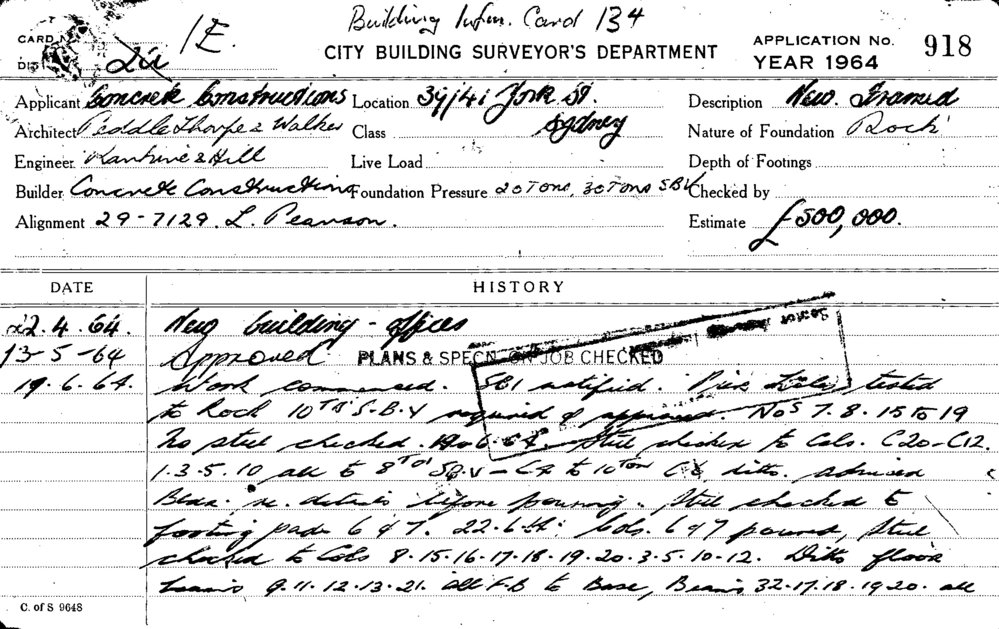 Building Infm. Card 134
CARD No.
1E.
CITY BUILDING SURVEYOR'S DEPARTMENT
APPLICATION No. 918
DIST. 2a
YEAR 1964
Applicant Concrete Constructions Location 39/41 York St. Description New Framed
Architect Peddle Thorpe & Walker Class Sydney Nature of Foundation Rock
Engineer Rankine & Hill Live Load Depth of Footings
Builder Concrete Constructions Foundation Pressure 20 Tons, 30 Tons S.B.V Checked by
Alignment 29-7129. L. Pearson. Estimate £500,000.
DATE HISTORY
22.4.64. New building - offices
13-5-64 Approved PLANS & SPECN. ON JOB CHECKED
19.6.64. Work commenced. SBI notified. tested
to Rock 10 S.B.V required & approved. Nos 7.8.15 to 19
No steel checked. Steel checked to Cols. C20-C12.
1.3.5.10 all to 8 Ton S.B.V - to 10 Ton ditto. advised
re. details before pouring. Steel checked to
footing pads 6 & 7. 22.6.64: Cols. 6 & 7 poured, steel
checked to Cols 8-15-16-17-18-19-20-3-5-10-12. Ditto floor
beams 9.11.12.13.21. all F.B to Base, Beams 32.17.18.19.20. all
C. of S 9648